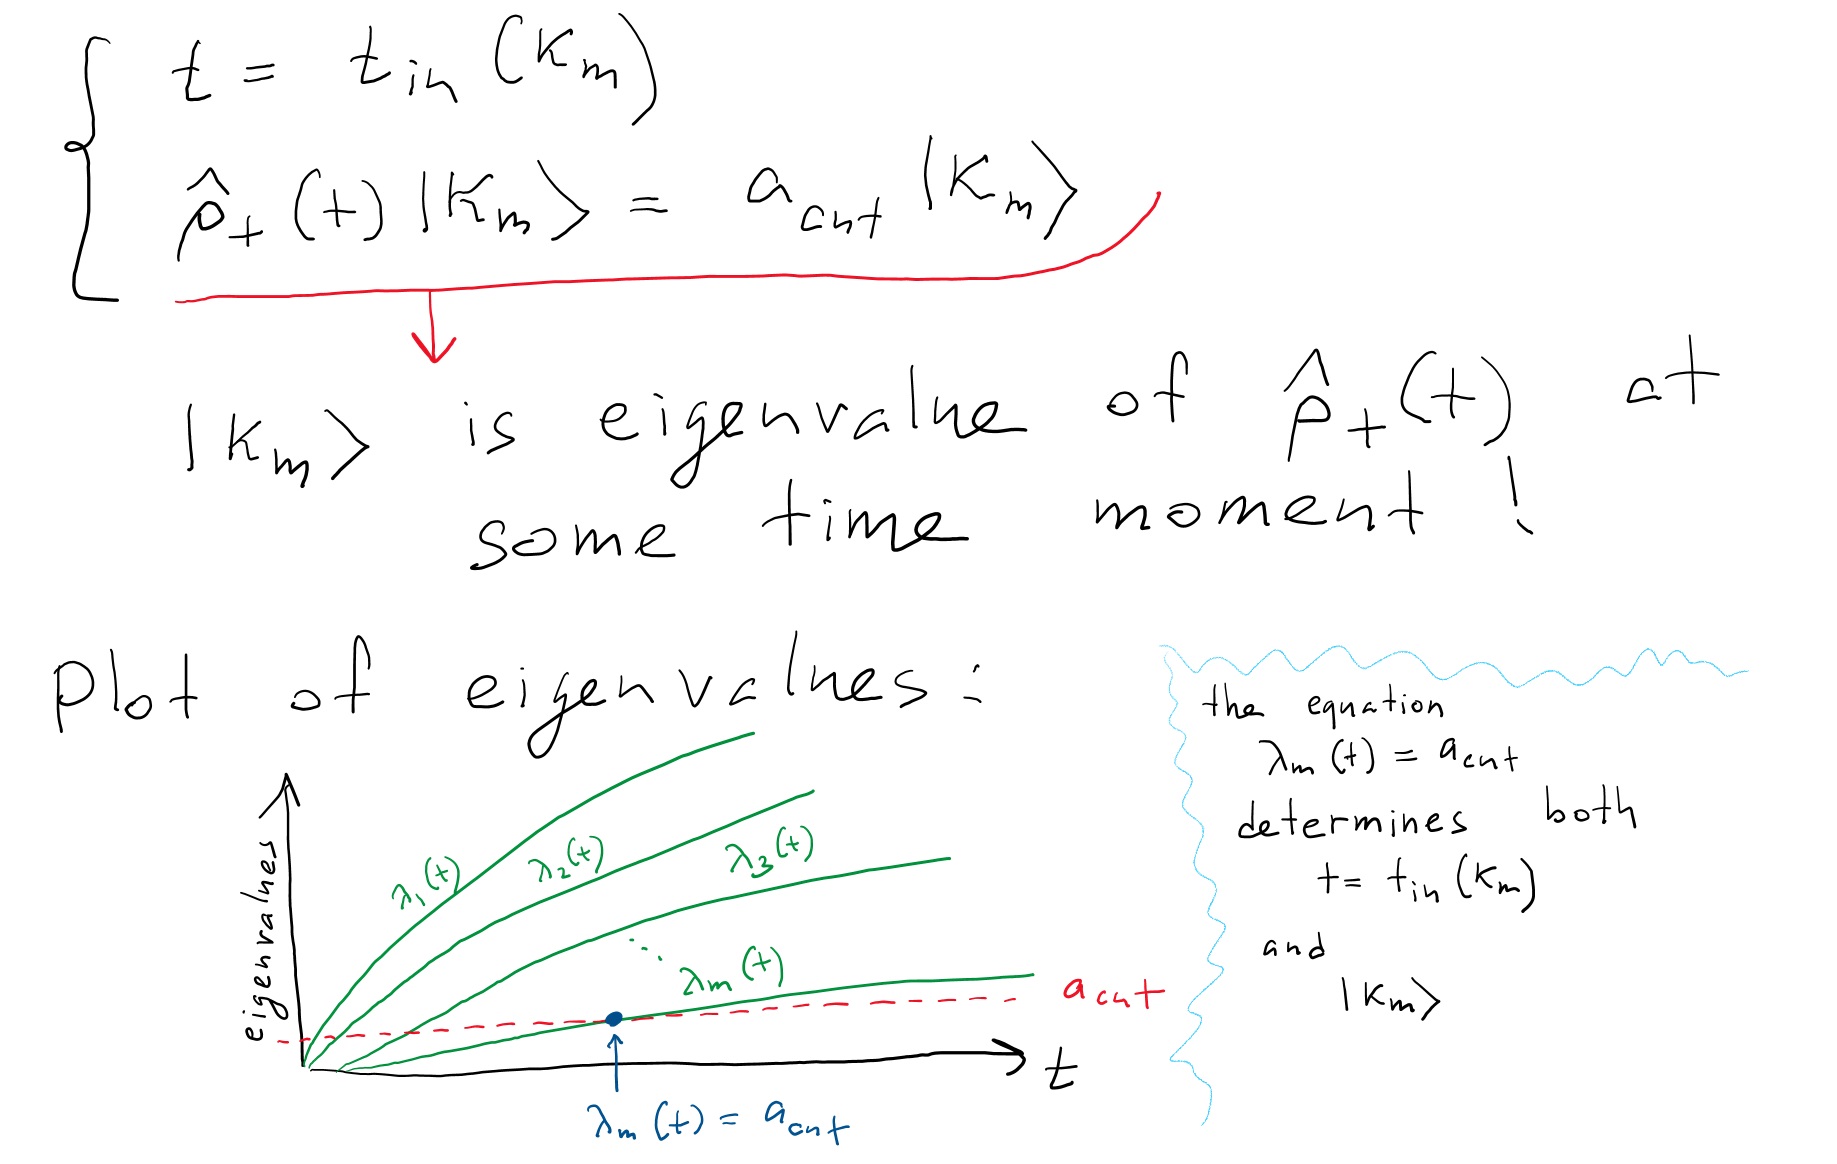 t = t_in (K_m)
ρ̂_+ (t) |K_m⟩ = a_cut |K_m⟩
|K_m⟩ is eigenvalue of ρ̂_+(t) at
some time moment !
Plot of eigenvalues:
eigenvalues
λ_1(t)
λ_2(t)
λ_3(t)
λ_m(t)
a_cut
t
λ_m (t) = a_cut
the equation
λ_m (t) = a_cut
determines both
t = t_in (K_m)
and
|K_m⟩